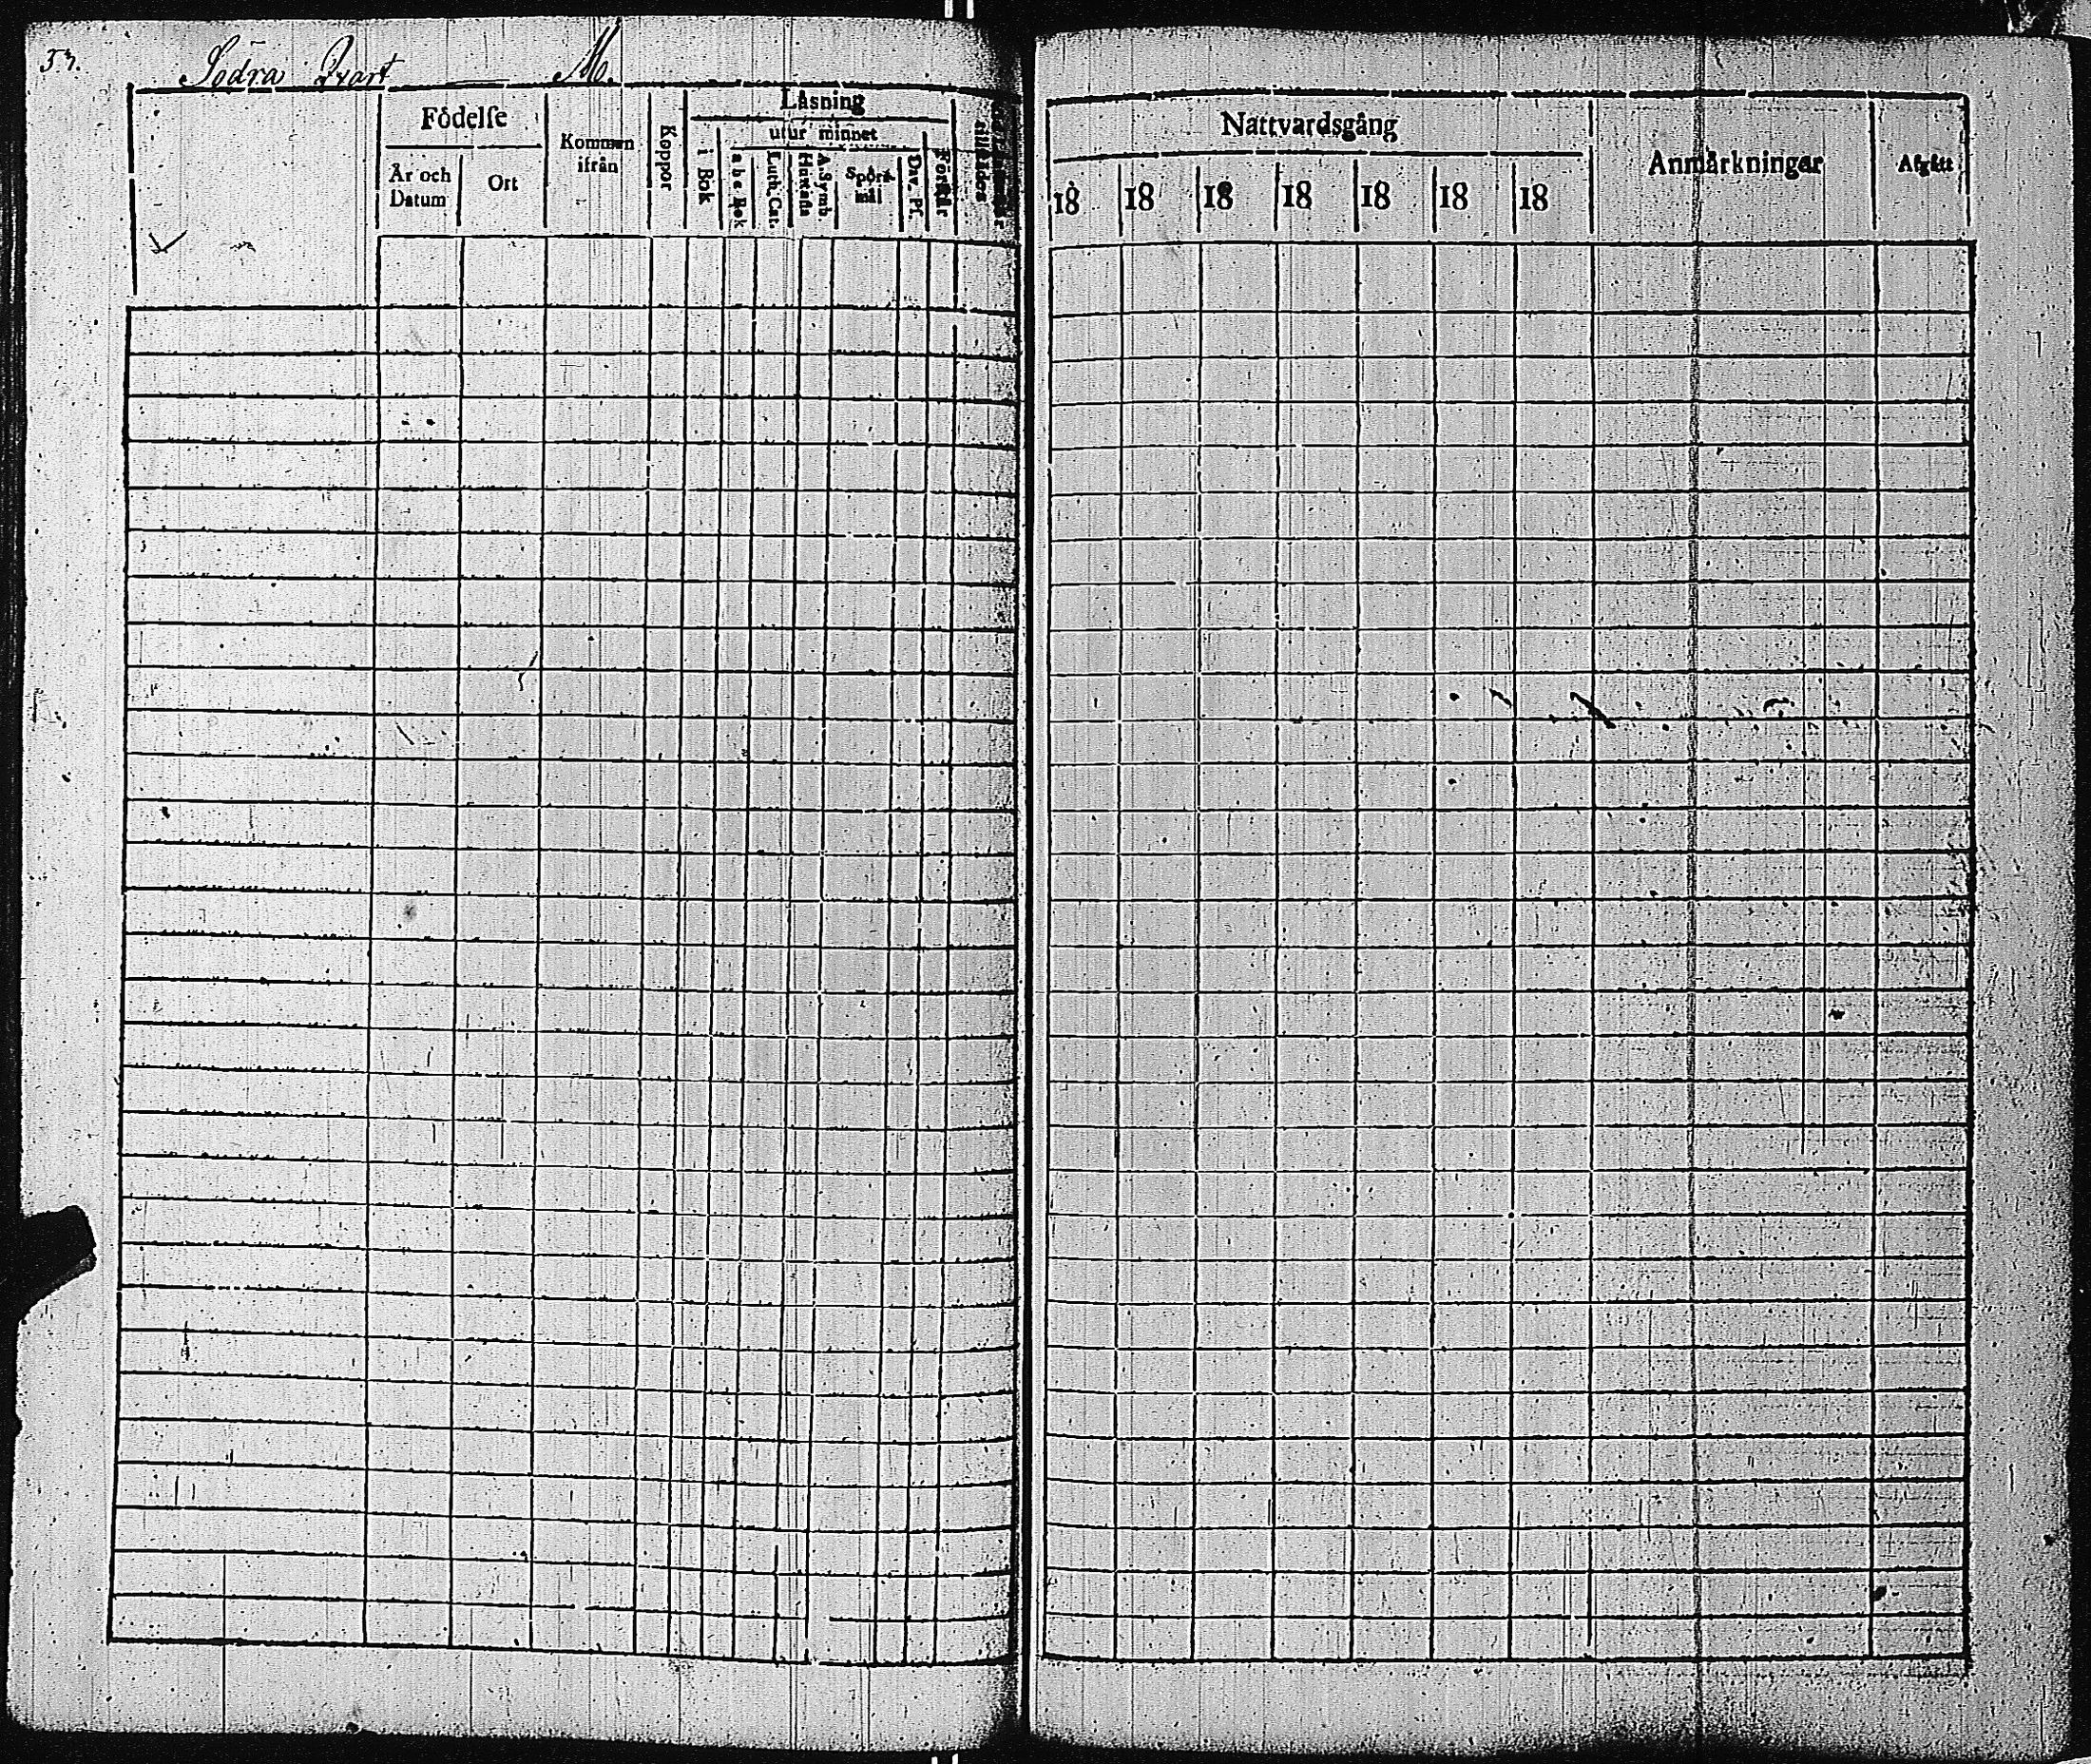 57.
Södra Qvart — M.
Födelse
Låsning
Kommen ifrån
Koppor
utur minnet
År och Datum
Ort
i Bok
a b c Bok
Luth. Cat.
A. Symb.
Hustafla
Spörsmål
Dav. Ps.
Förstår
Nattvardsgång
Anmärkningar
Afgått
18 18 18 18 18 18 18